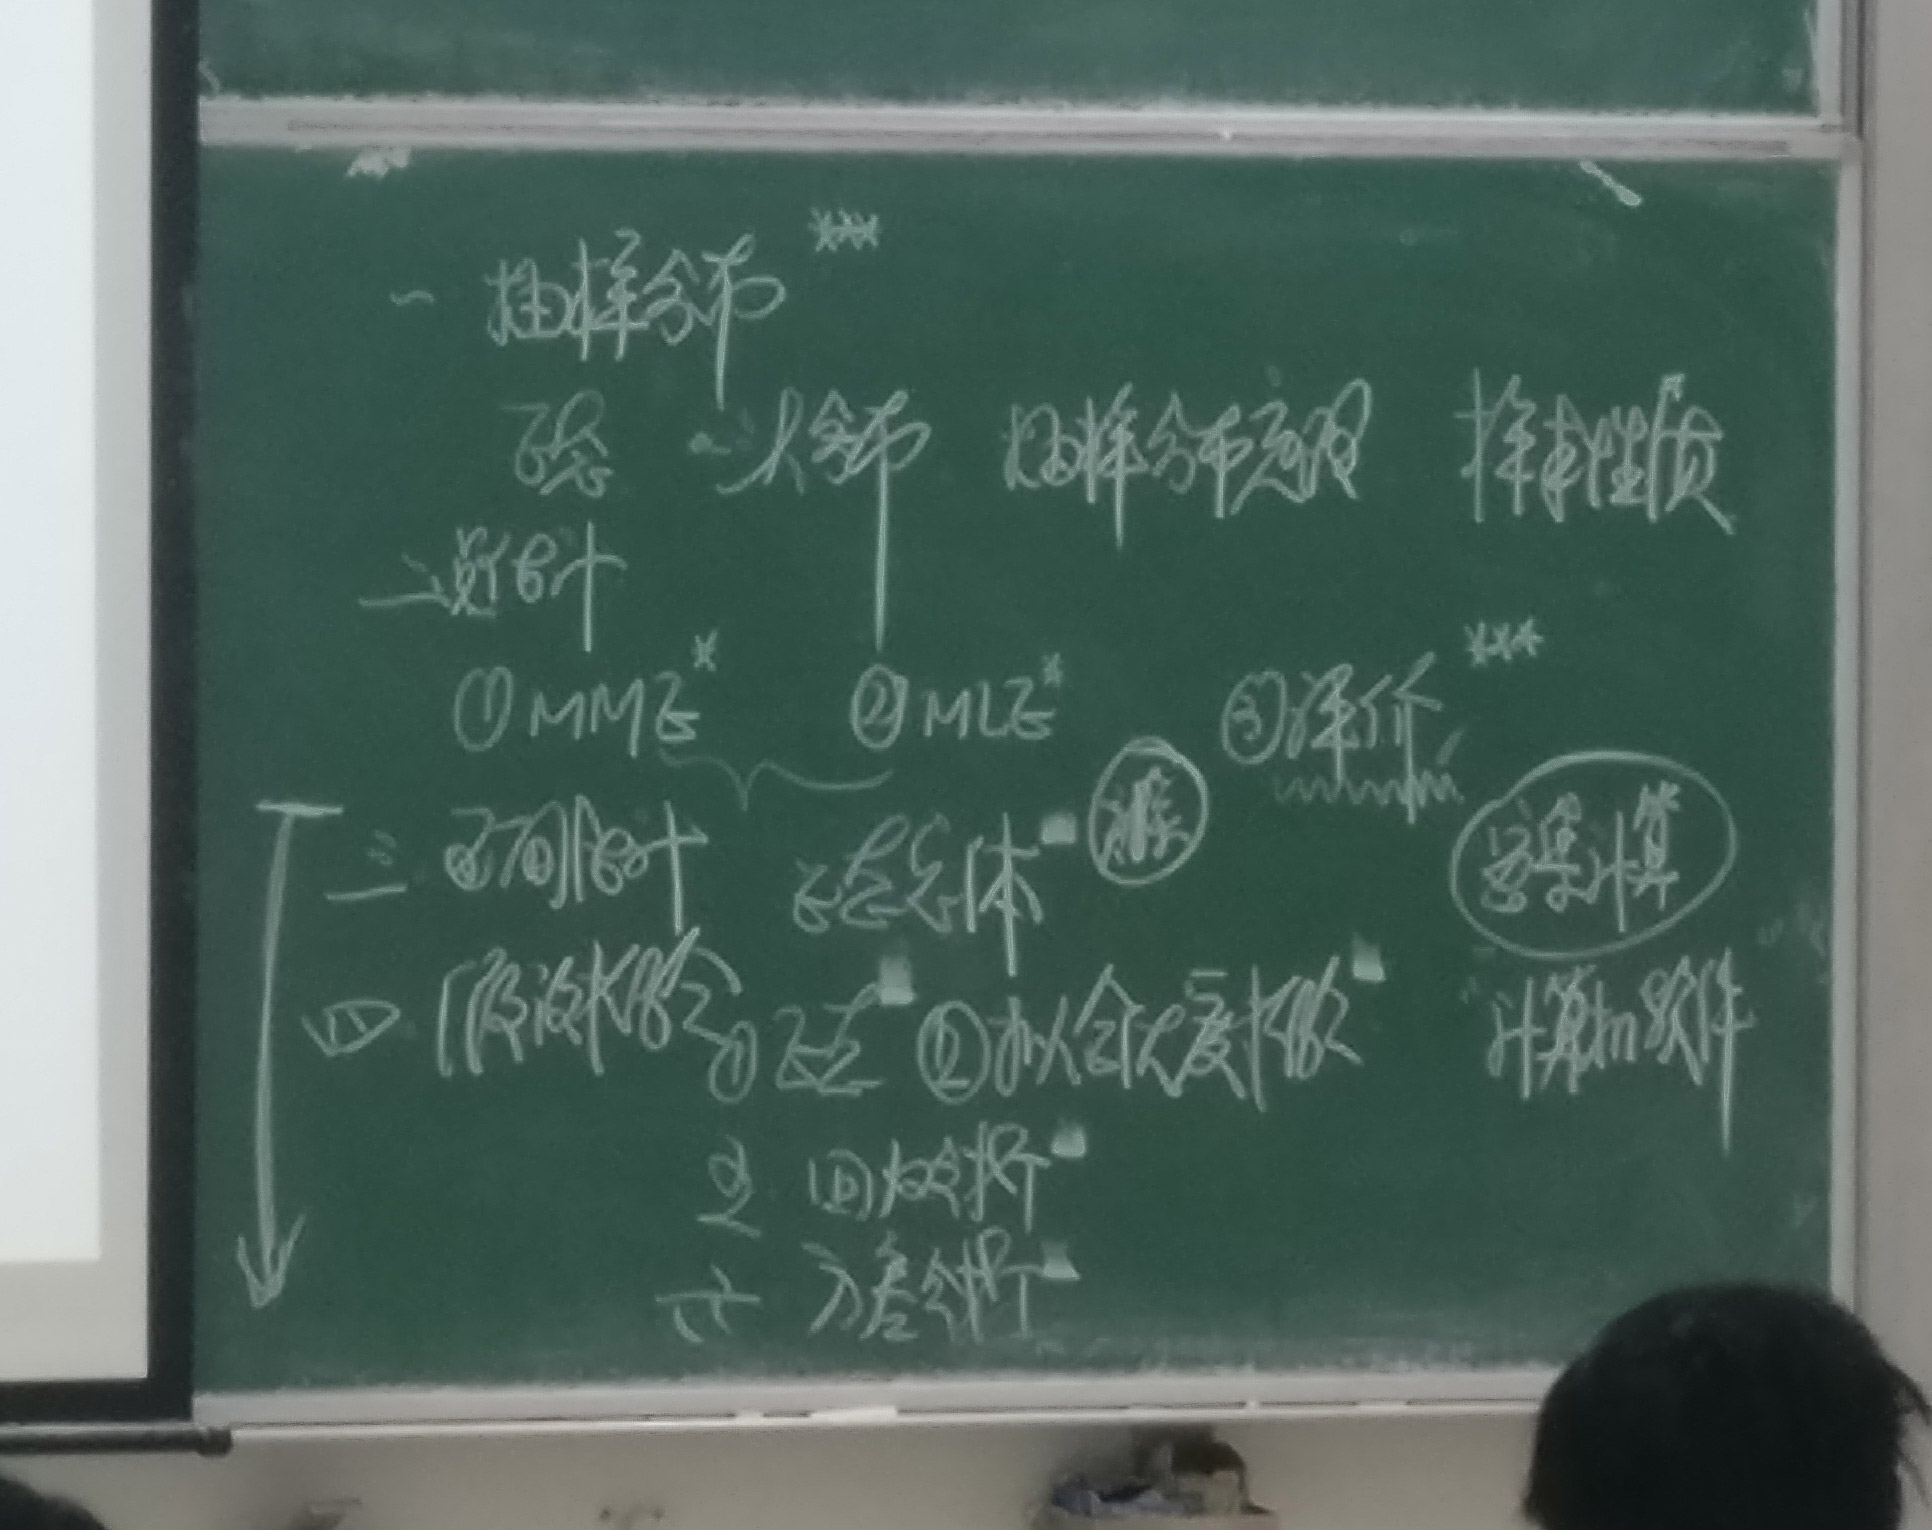 一 抽样分布 ***
三大分布 抽样分布定理 样本性质
二 点估计
①MME* ②MLE* ③评价***
三 区间估计 正态总体
结果计算
四 假设检验 ①正态 ②拟合优度检验 计算机软件
五 回归分析
六 方差分析